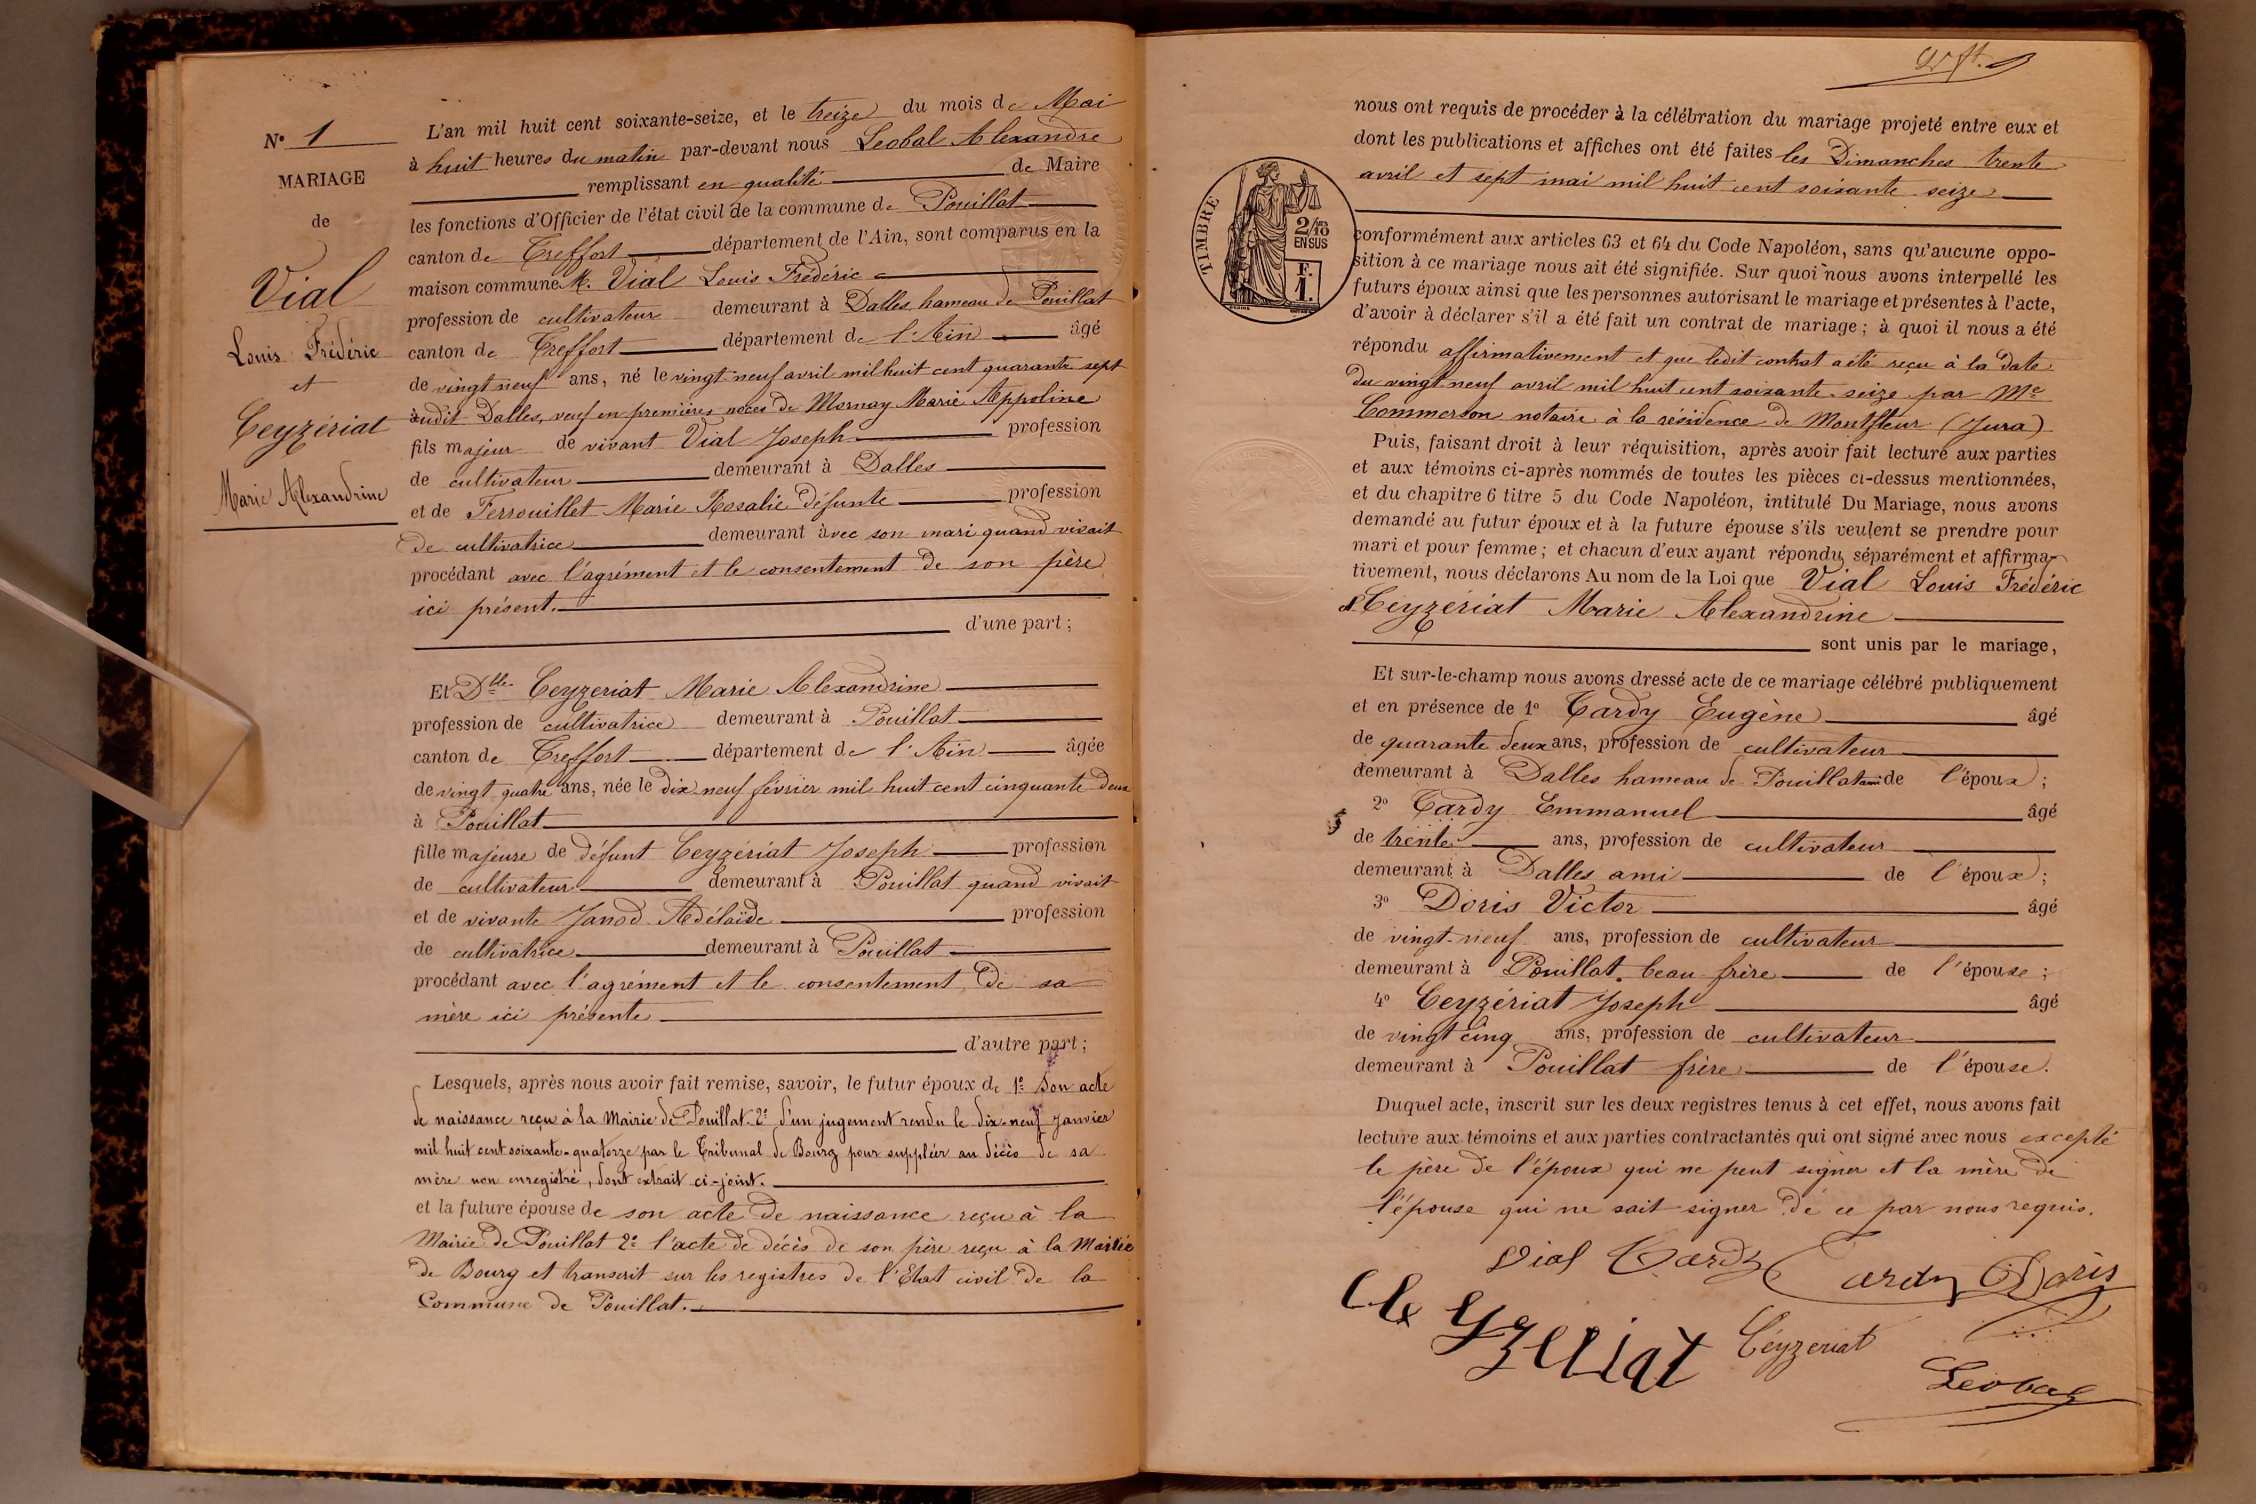 N° 1
MARIAGE
de
Vial
Louis Frédéric
et
Ceyzériat
Marie Alexandrine
L'an mil huit cent soixante-seize, et le treize du mois de Mai
à huit heures du matin par-devant nous Leobal Alexandre
remplissant en qualité de Maire
les fonctions d'Officier de l'état civil de la commune de Pouillat
canton de Treffort département de l'Ain, sont comparus en la
maison commune M. Vial Louis Frédéric
profession de cultivateur demeurant à Dalles hameau de Pouillat
canton de Treffort département de l'Ain âgé
de vingt neuf ans, né le vingt-neuf avril mil huit cent quarante sept
audit Dalles, veuf en premières noces de Mornay Marie Appoline
fils majeur de vivant Vial Joseph profession
de cultivateur demeurant à Dalles
et de Ferrouillet Marie Rosalie défunte profession
de cultivatrice demeurant avec son mari quand vivait
procédant avec l'agrément et le consentement de son père
ici présent.
d'une part ;
Et Dlle Ceyzeriat Marie Alexandrine
profession de cultivatrice demeurant à Pouillat
canton de Treffort département de l'Ain âgée
de vingt quatre ans, née le dix neuf février mil huit cent cinquante deux
à Pouillat
fille majeure de défunt Ceyzériat Joseph profession
de cultivateur demeurant à Pouillat quand vivait
et de vivante Janod Adélaïde profession
de cultivatrice demeurant à Pouillat
procédant avec l'agrément et le consentement de sa
mère ici présente
d'autre part ;
Lesquels, après nous avoir fait remise, savoir, le futur époux de 1° son acte
de naissance reçu à la Mairie de Pouillat. 2° d'un jugement rendu le dix-neuf Janvier
mil huit cent soixante-quatorze par le Tribunal de Bourg pour suppléer au décès de sa
mère non enregistré, dont extrait ci-joint.
et la future épouse de son acte de naissance reçu à la
Mairie de Pouillat 2° l'acte de décès de son père reçu à la Mairie
de Bourg et transcrit sur les registres de l'Etat civil de la
Commune de Pouillat.
nous ont requis de procéder à la célébration du mariage projeté entre eux et
dont les publications et affiches ont été faites les Dimanches trente
avril et sept mai mil huit cent soixante seize
TIMBRE
2/10
EN SUS
F.
1.
conformément aux articles 63 et 64 du Code Napoléon, sans qu'aucune oppo-
sition à ce mariage nous ait été signifiée. Sur quoi nous avons interpellé les
futurs époux ainsi que les personnes autorisant le mariage et présentes à l'acte,
d'avoir à déclarer s'il a été fait un contrat de mariage ; à quoi il nous a été
répondu affirmativement et que ledit contrat a été reçu à la date
du vingt neuf avril mil huit cent soixante seize par Me
Commerson notaire à la résidence de Montfleur (Jura)
Puis, faisant droit à leur réquisition, après avoir fait lecture aux parties
et aux témoins ci-après nommés de toutes les pièces ci-dessus mentionnées,
et du chapitre 6 titre 5 du Code Napoléon, intitulé Du Mariage, nous avons
demandé au futur époux et à la future épouse s'ils veulent se prendre pour
mari et pour femme ; et chacun d'eux ayant répondu séparément et affirma-
tivement, nous déclarons Au nom de la Loi que Vial Louis Frédéric
& Ceyzériat Marie Alexandrine
sont unis par le mariage,
Et sur-le-champ nous avons dressé acte de ce mariage célébré publiquement
et en présence de 1° Tardy Eugène âgé
de quarante deux ans, profession de cultivateur
demeurant à Dalles hameau de Pouillat ami de l'époux ;
2° Tardy Emmanuel âgé
de trente ans, profession de cultivateur
demeurant à Dalles ami de l'époux ;
3° Doris Victor âgé
de vingt-neuf ans, profession de cultivateur
demeurant à Pouillat, beau frère de l'épouse ;
4° Ceyzériat Joseph âgé
de vingt cinq ans, profession de cultivateur
demeurant à Pouillat frère de l'épouse.
Duquel acte, inscrit sur les deux registres tenus à cet effet, nous avons fait
lecture aux témoins et aux parties contractantes qui ont signé avec nous excepté
le père de l'époux qui ne peut signer et la mère de
l'épouse qui ne sait signer de ce par nous requis.
Vial Tardy Tardy Doris
Ceyzeriat
Leobal